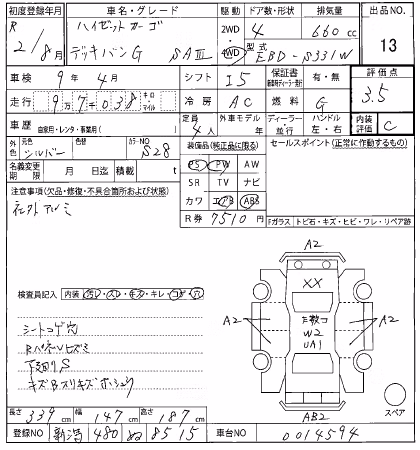 初度登録年月 車名・グレード 駆動 ドア数・形状 排気量 出品NO.
R 2/8月 ハイゼットカーゴ デッキバンG SAⅢ 2WD 4WD 4 660cc 13
型式 EBD-S331W
車検 9年4月 シフト I5 保証書 有・無 評価点 3.5
走行 97038 キロ・マイル 冷房 AC 燃料 G
車歴 自家用・レンタ・事業用( ) 定員 4人 外車モデル 年 ディーラー・並行 ハンドル 左・右 内装評価 C
外色 元色 シルバー カラーNO S28 装備品(純正品に限る) セールスポイント(正常に作動するもの)
PS PW AW
名義変更期限 月 日迄 積載 t SR TV ナビ
注意事項(欠品・修復・不具合箇所および状態) カワ エアB ABS
社外アルミ R券 7510円
Fガラス トビ石・キズ・ヒビ・ワレ・リペア跡
A2
XX
検査員記入 内装 ヨゴレ・スレ・キズ・キレ・コゲ・穴
A2 A2
F数コ W2 UA1
シートコゲ穴
Bパネルヒズミ
下廻りS
AB2
スペア
長さ 339cm 幅 147cm 高さ 187cm
登録NO 新潟 480 ぬ 8515 車台NO 0014594